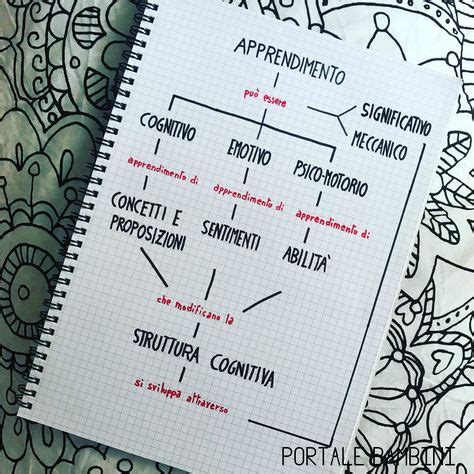 APPRENDIMENTO
può essere
SIGNIFICATIVO
MECCANICO
COGNITIVO
EMOTIVO
PSICO-MOTORIO
apprendimento di
apprendimento di
apprendimento di
CONCETTI E
PROPOSIZIONI
SENTIMENTI
ABILITÀ
che modificano la
STRUTTURA COGNITIVA
si sviluppa attraverso
PORTALE BAMBINI